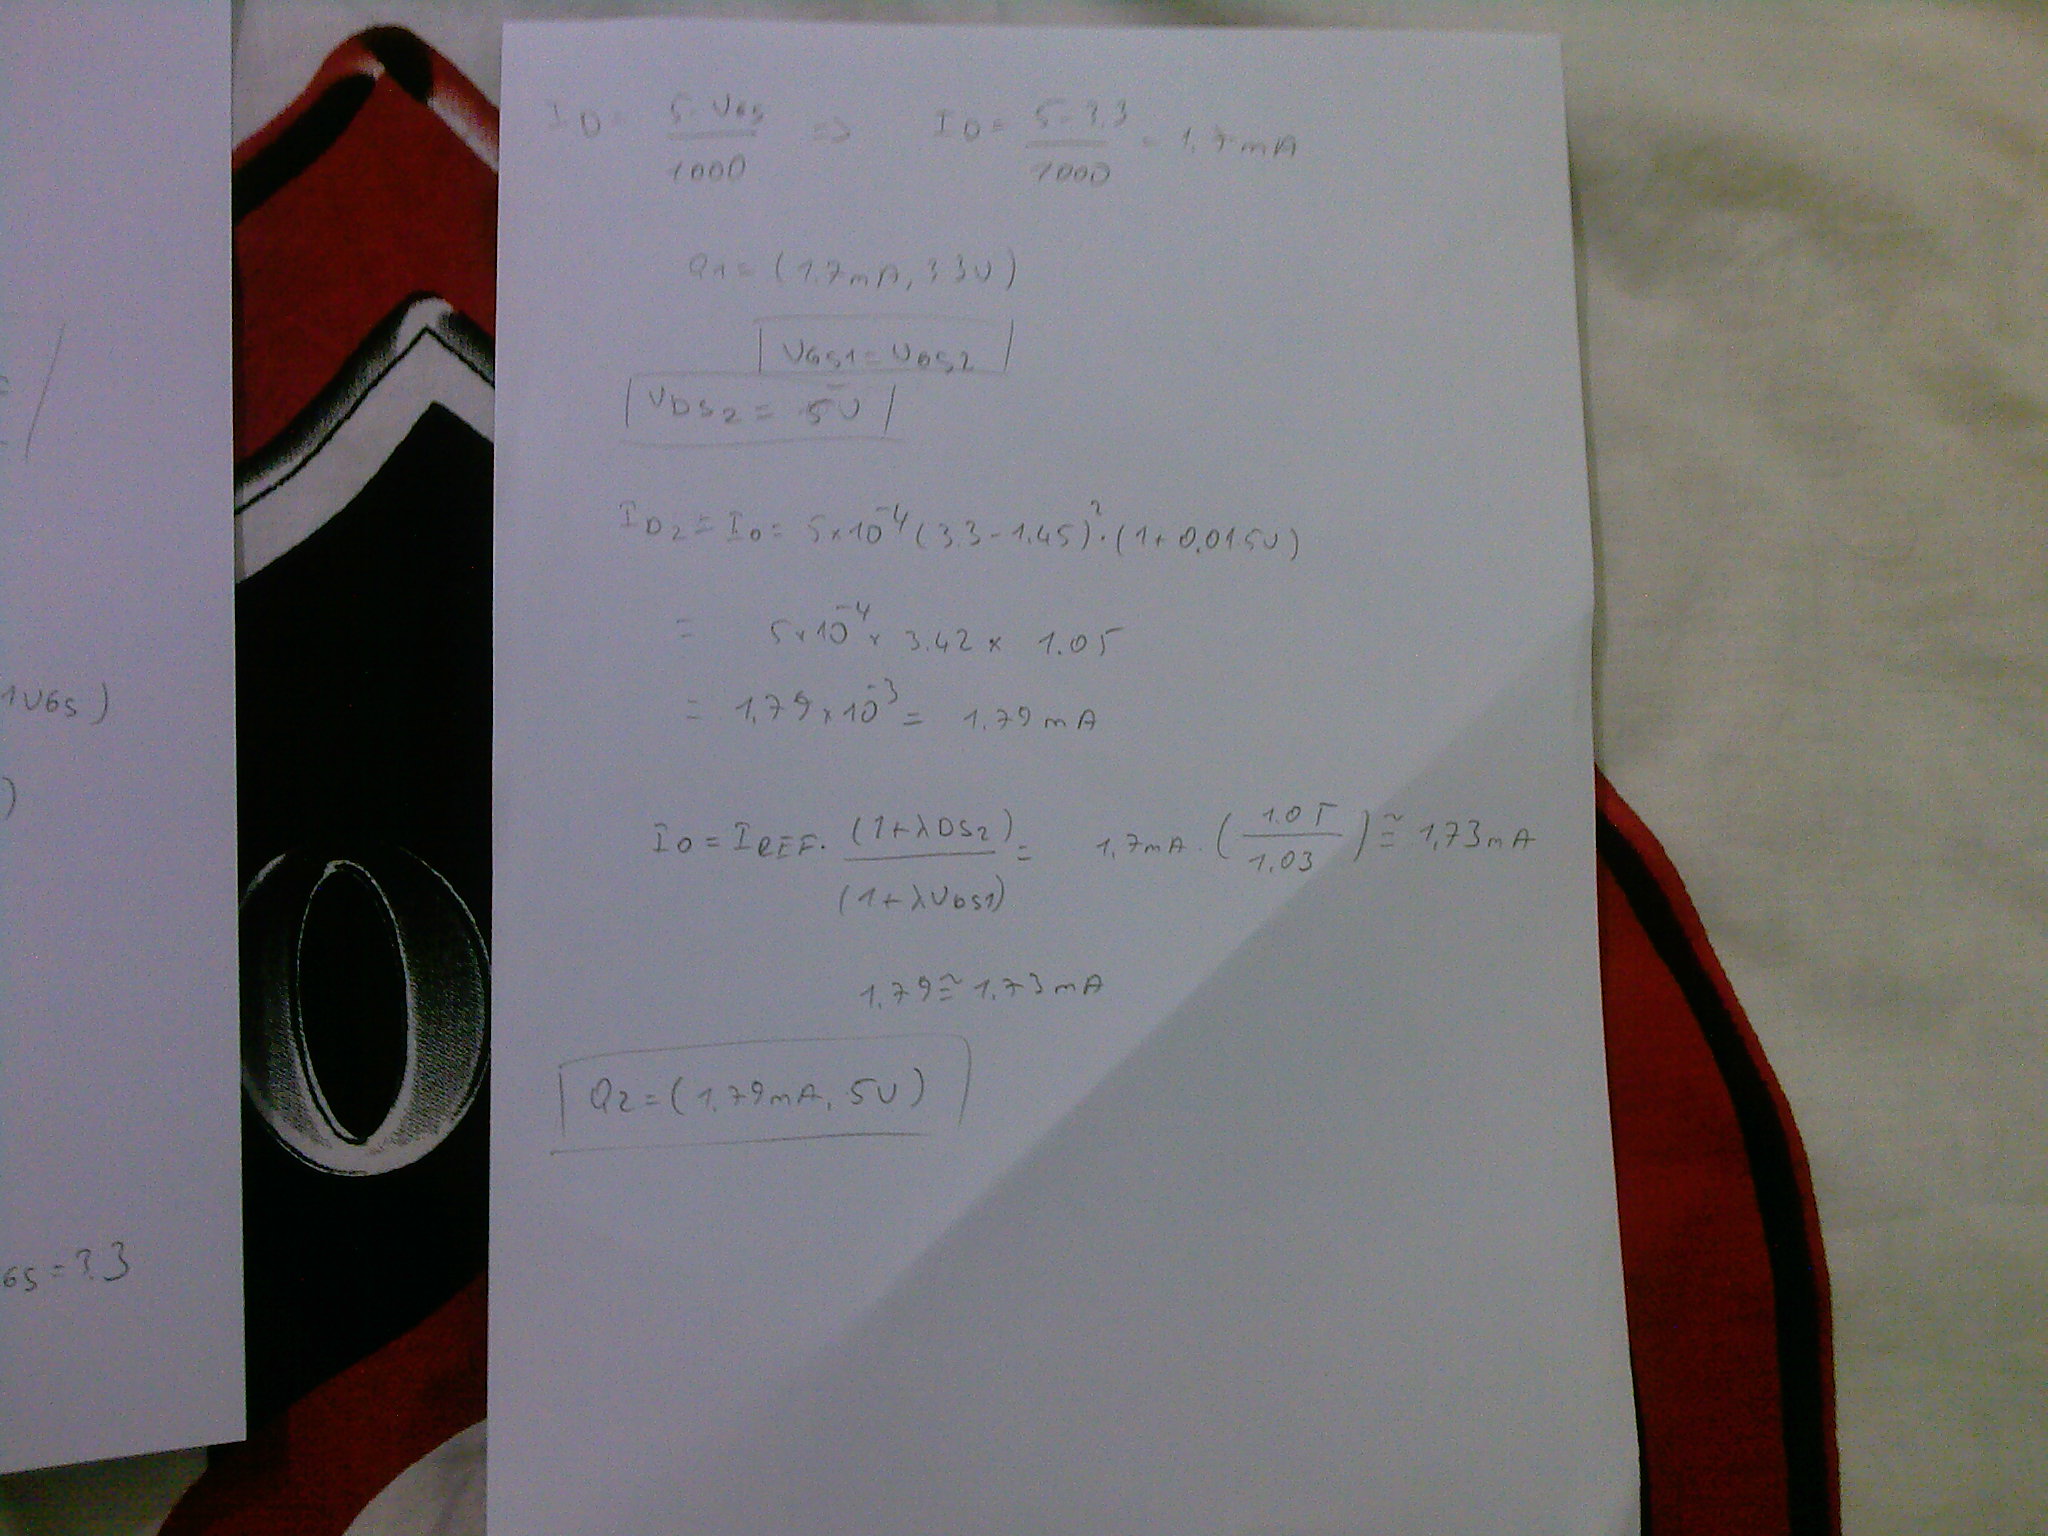 1VGS)
)
GS = 3.3
ID = 5 - VGS / 1000 => ID = 5 - 3.3 / 1000 = 1.7 mA
Q1 = (1.7mA, 3.3V)
VGS1 = VGS2
VDS2 = 5V
ID2 = IO = 5x10^-4 (3.3 - 1.45)^2 . (1 + 0.01 5V)
= 5x10^-4 x 3.42 x 1.05
= 1.79 x 10^-3 = 1.79 mA
IO = IREF. (1+λDS2) / (1+λVDS1) = 1.7mA . (1.05 / 1.03) ≅ 1.73mA
1.79 ≅ 1.73mA
Q2 = (1.79mA, 5V)